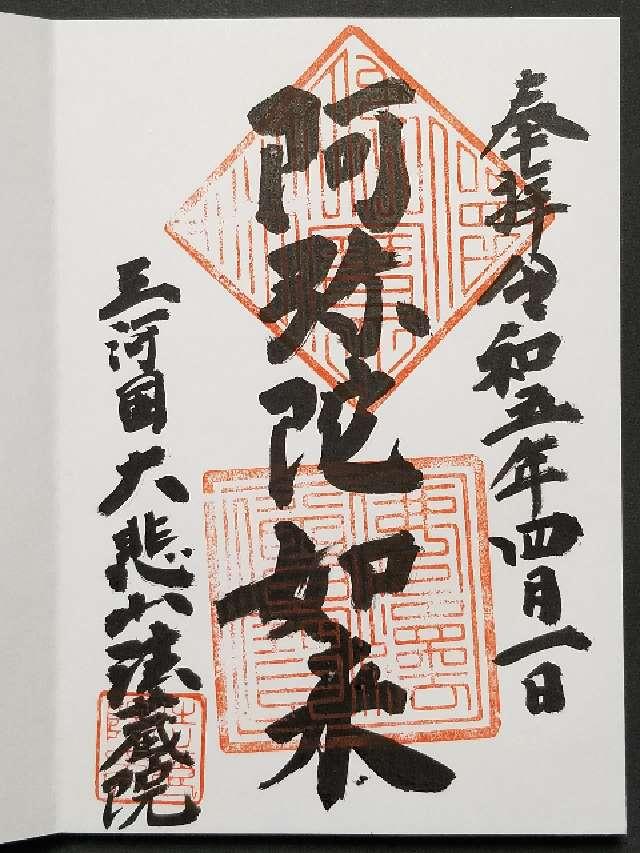 奉拝令和五年四月一日
阿弥陀如来
三河国大悲山法蔵院